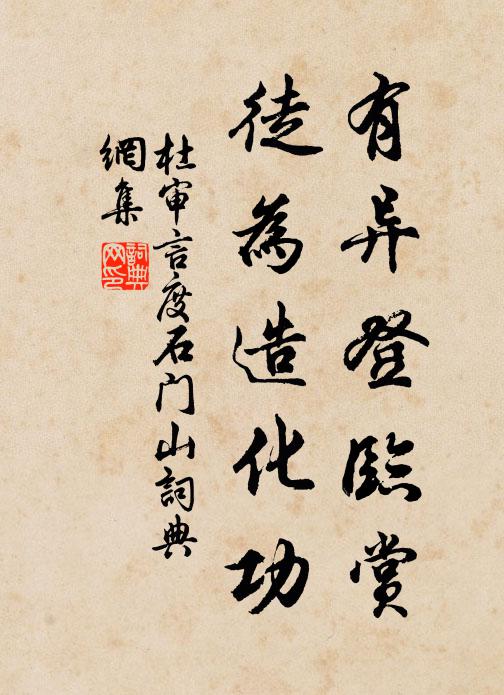 有异登臨赏
徒為造化功
杜审言度石门山詞典
網集
詞典网印